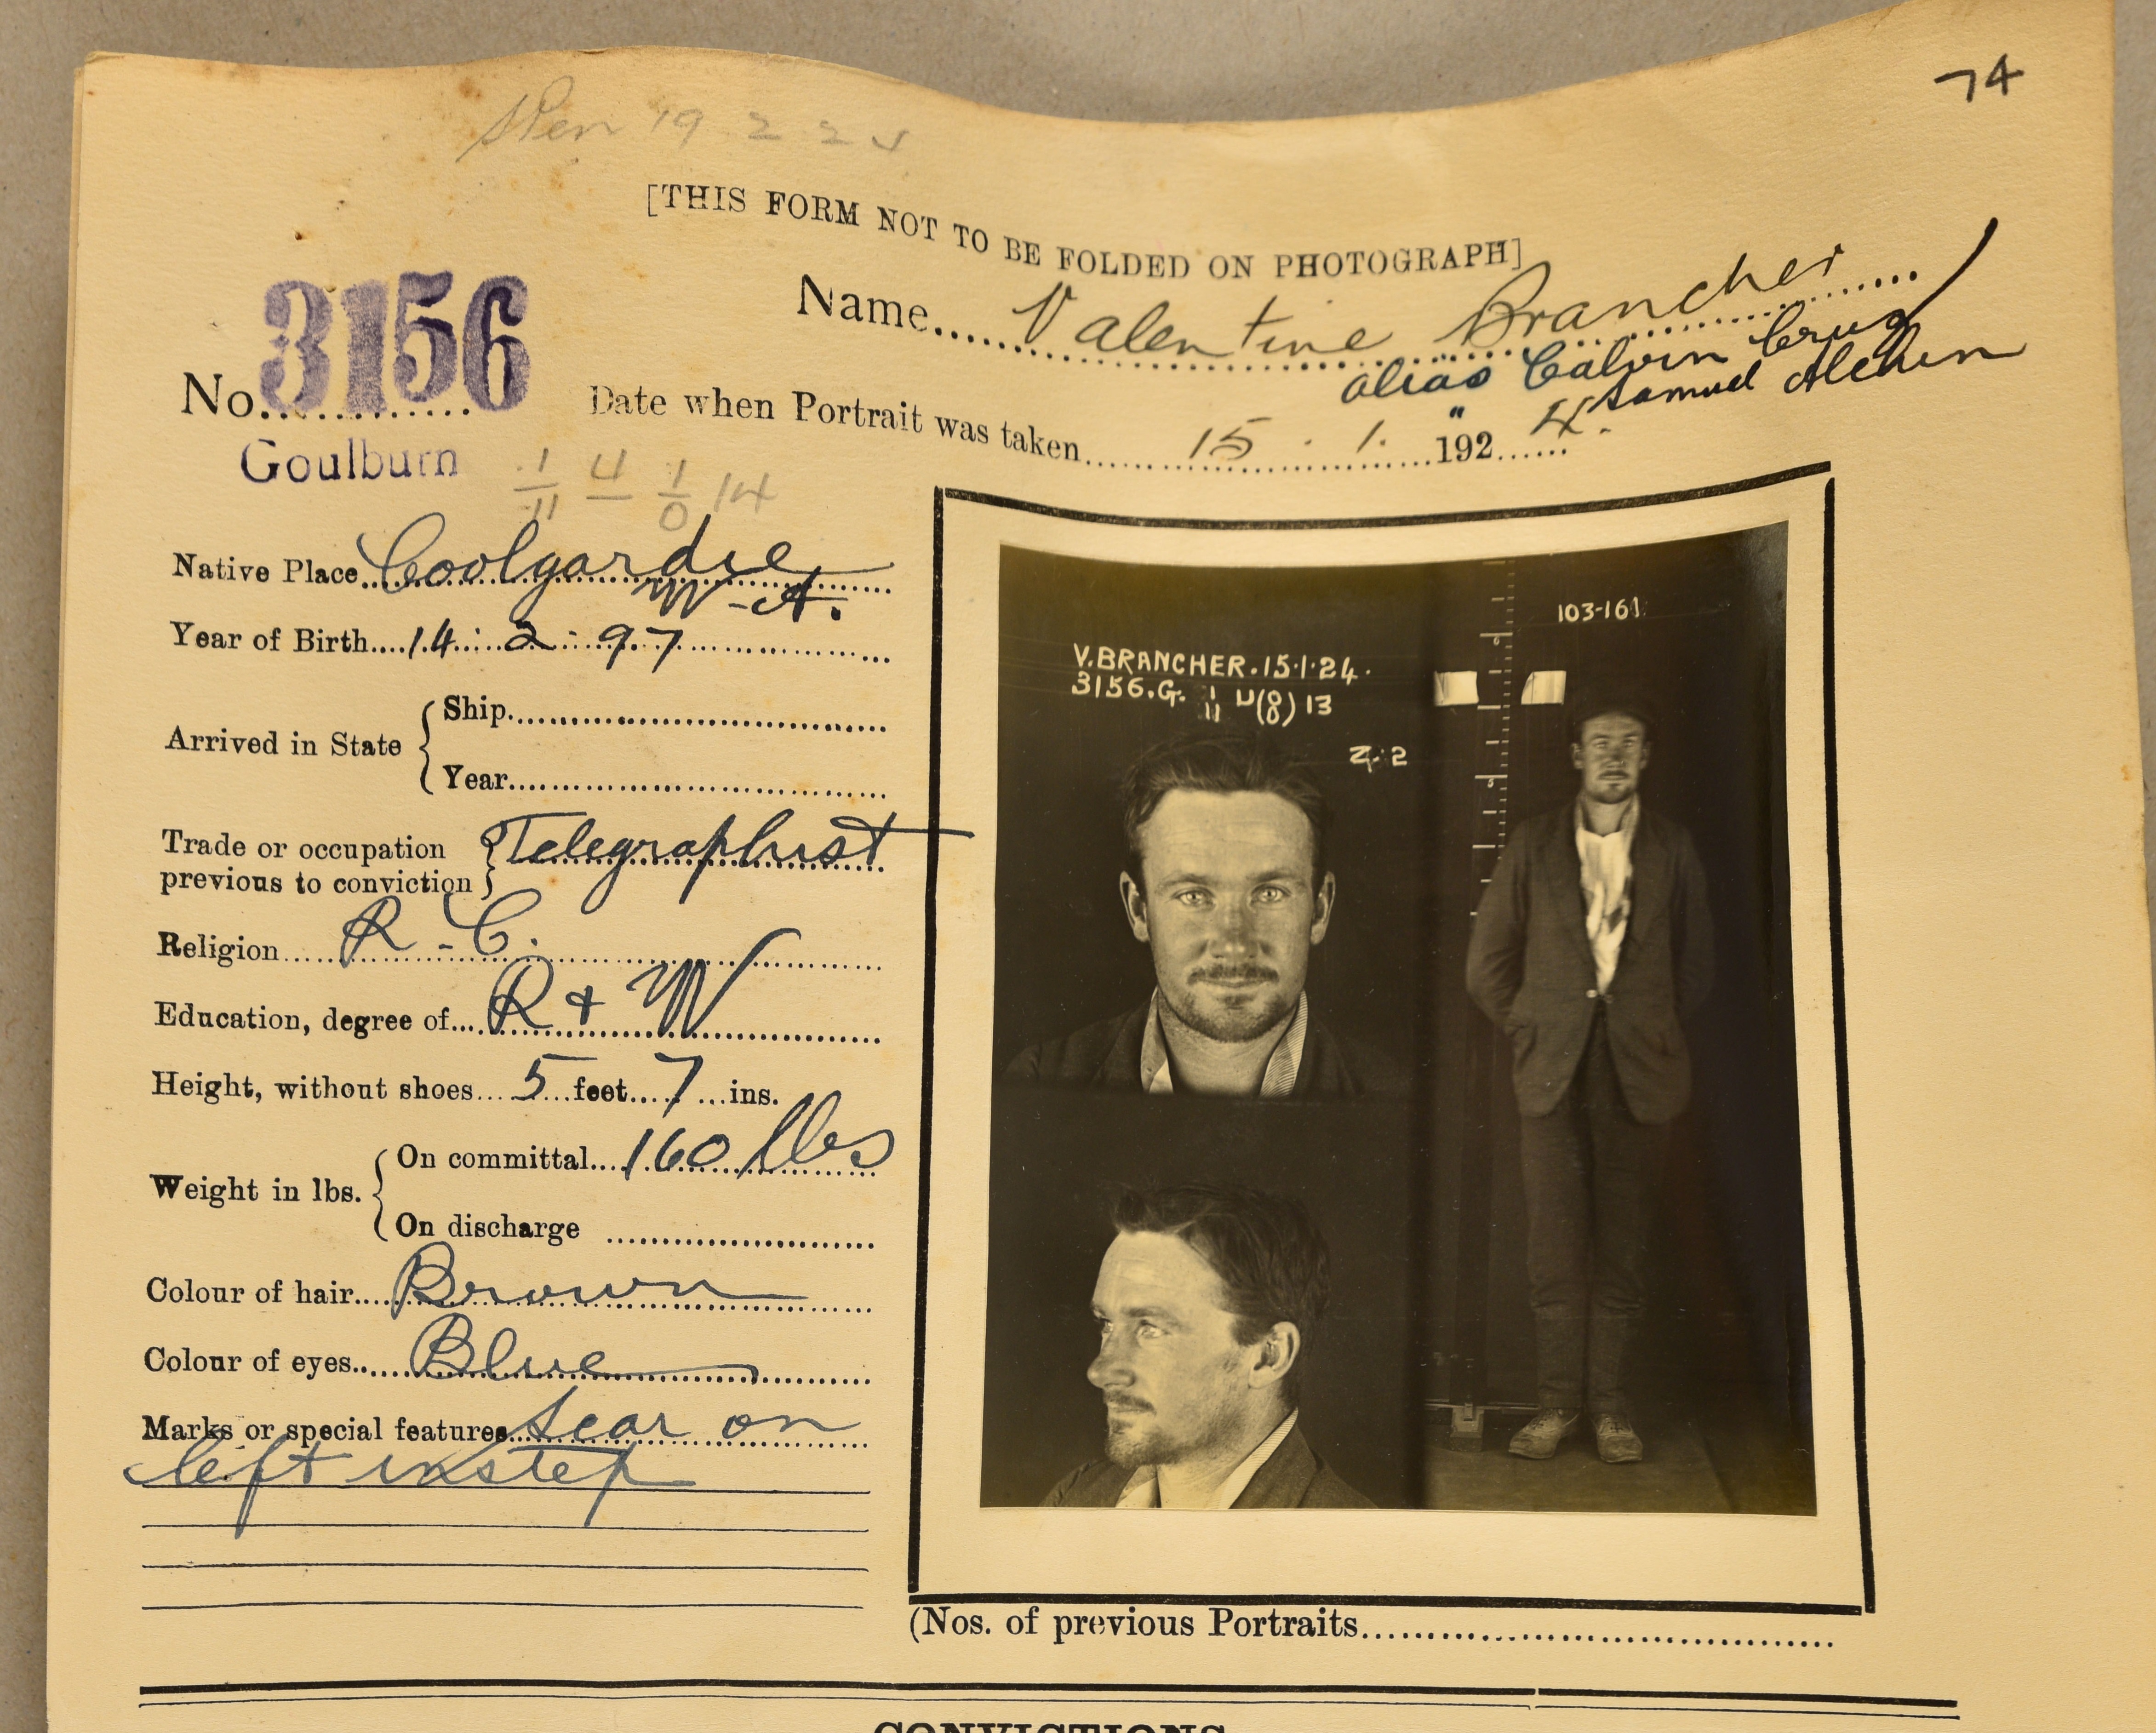 74
19 2 2
[THIS FORM NOT TO BE FOLDED ON PHOTOGRAPH]
No. 3156
Goulburn
Name Valentine Brancher
alias Calvin
" Samuel
Date when Portrait was taken 15 . 1. 1924.
1 4 1 14
11 0
Native Place Coolgardie
W-A.
Year of Birth 14 : 2 : 97
Arrived in State { Ship
Year
Trade or occupation previous to conviction } Telegraphist
Religion R-C.
Education, degree of R + W
Height, without shoes 5 feet 7 ins.
Weight in lbs. { On committal 160 lbs
On discharge
Colour of hair Brown
Colour of eyes Blue
Marks or special features Scar on
left instep
V. BRANCHER. 15·1·24.
3156.G. 1/11 U(8/0) 13
Z·2
103-161
(Nos. of previous Portraits
CONVICTIONS